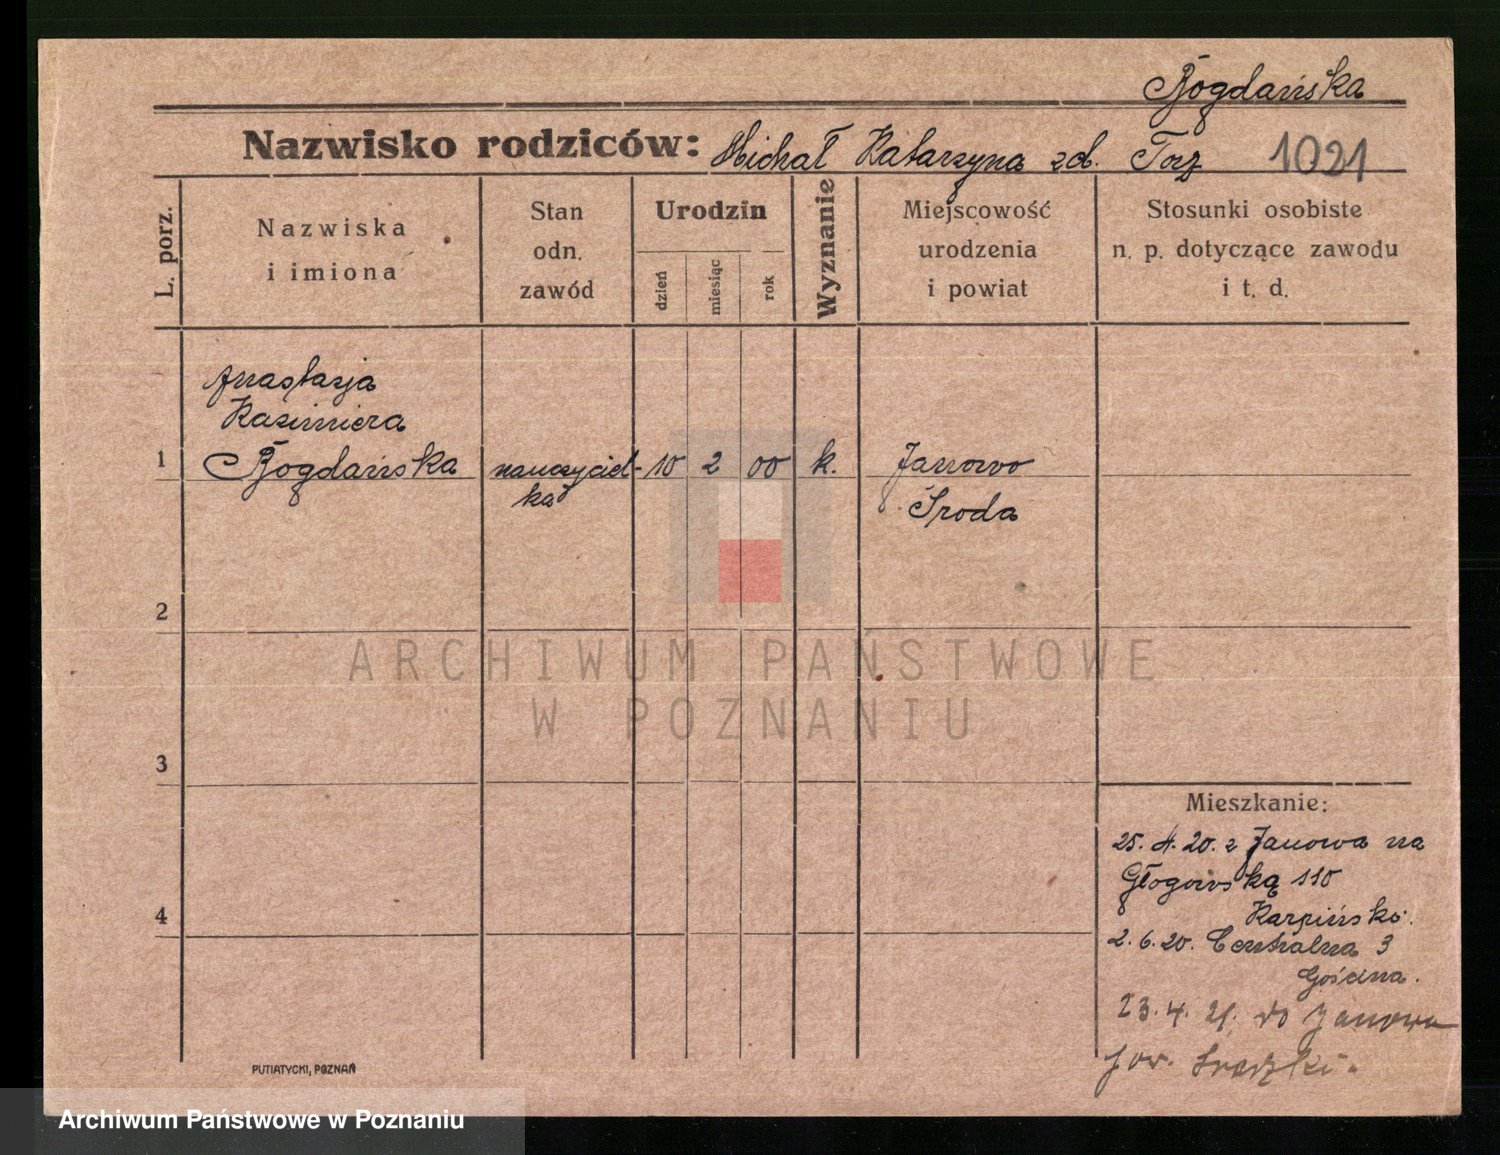 Bogdańska
Nazwisko rodziców: Michał Katarzyna zd. Torz 1021
L. porz.
Nazwiska
i imiona
Stan
odn.
zawód
Urodzin
dzień
miesiąc
rok
Wyznanie
Miejscowość
urodzenia
i powiat
Stosunki osobiste
n. p. dotyczące zawodu
i t. d.
Anastazja
Kazimiera
1 Bogdańska nauczyciel- 10 2 00 k. Janowo
ka Środa
2
ARCHIWUM PAŃSTWOWE
W POZNANIU
3
Mieszkanie:
25. 4. 20. z Janowa na
Głogowską 110
Karpiński.
4
2. 6. 20. Centralna 3
Gościna.
23. 4. 21. do Janowa
pow. Średzki.
PUTIATYCKI, POZNAŃ
Archiwum Państwowe w Poznaniu